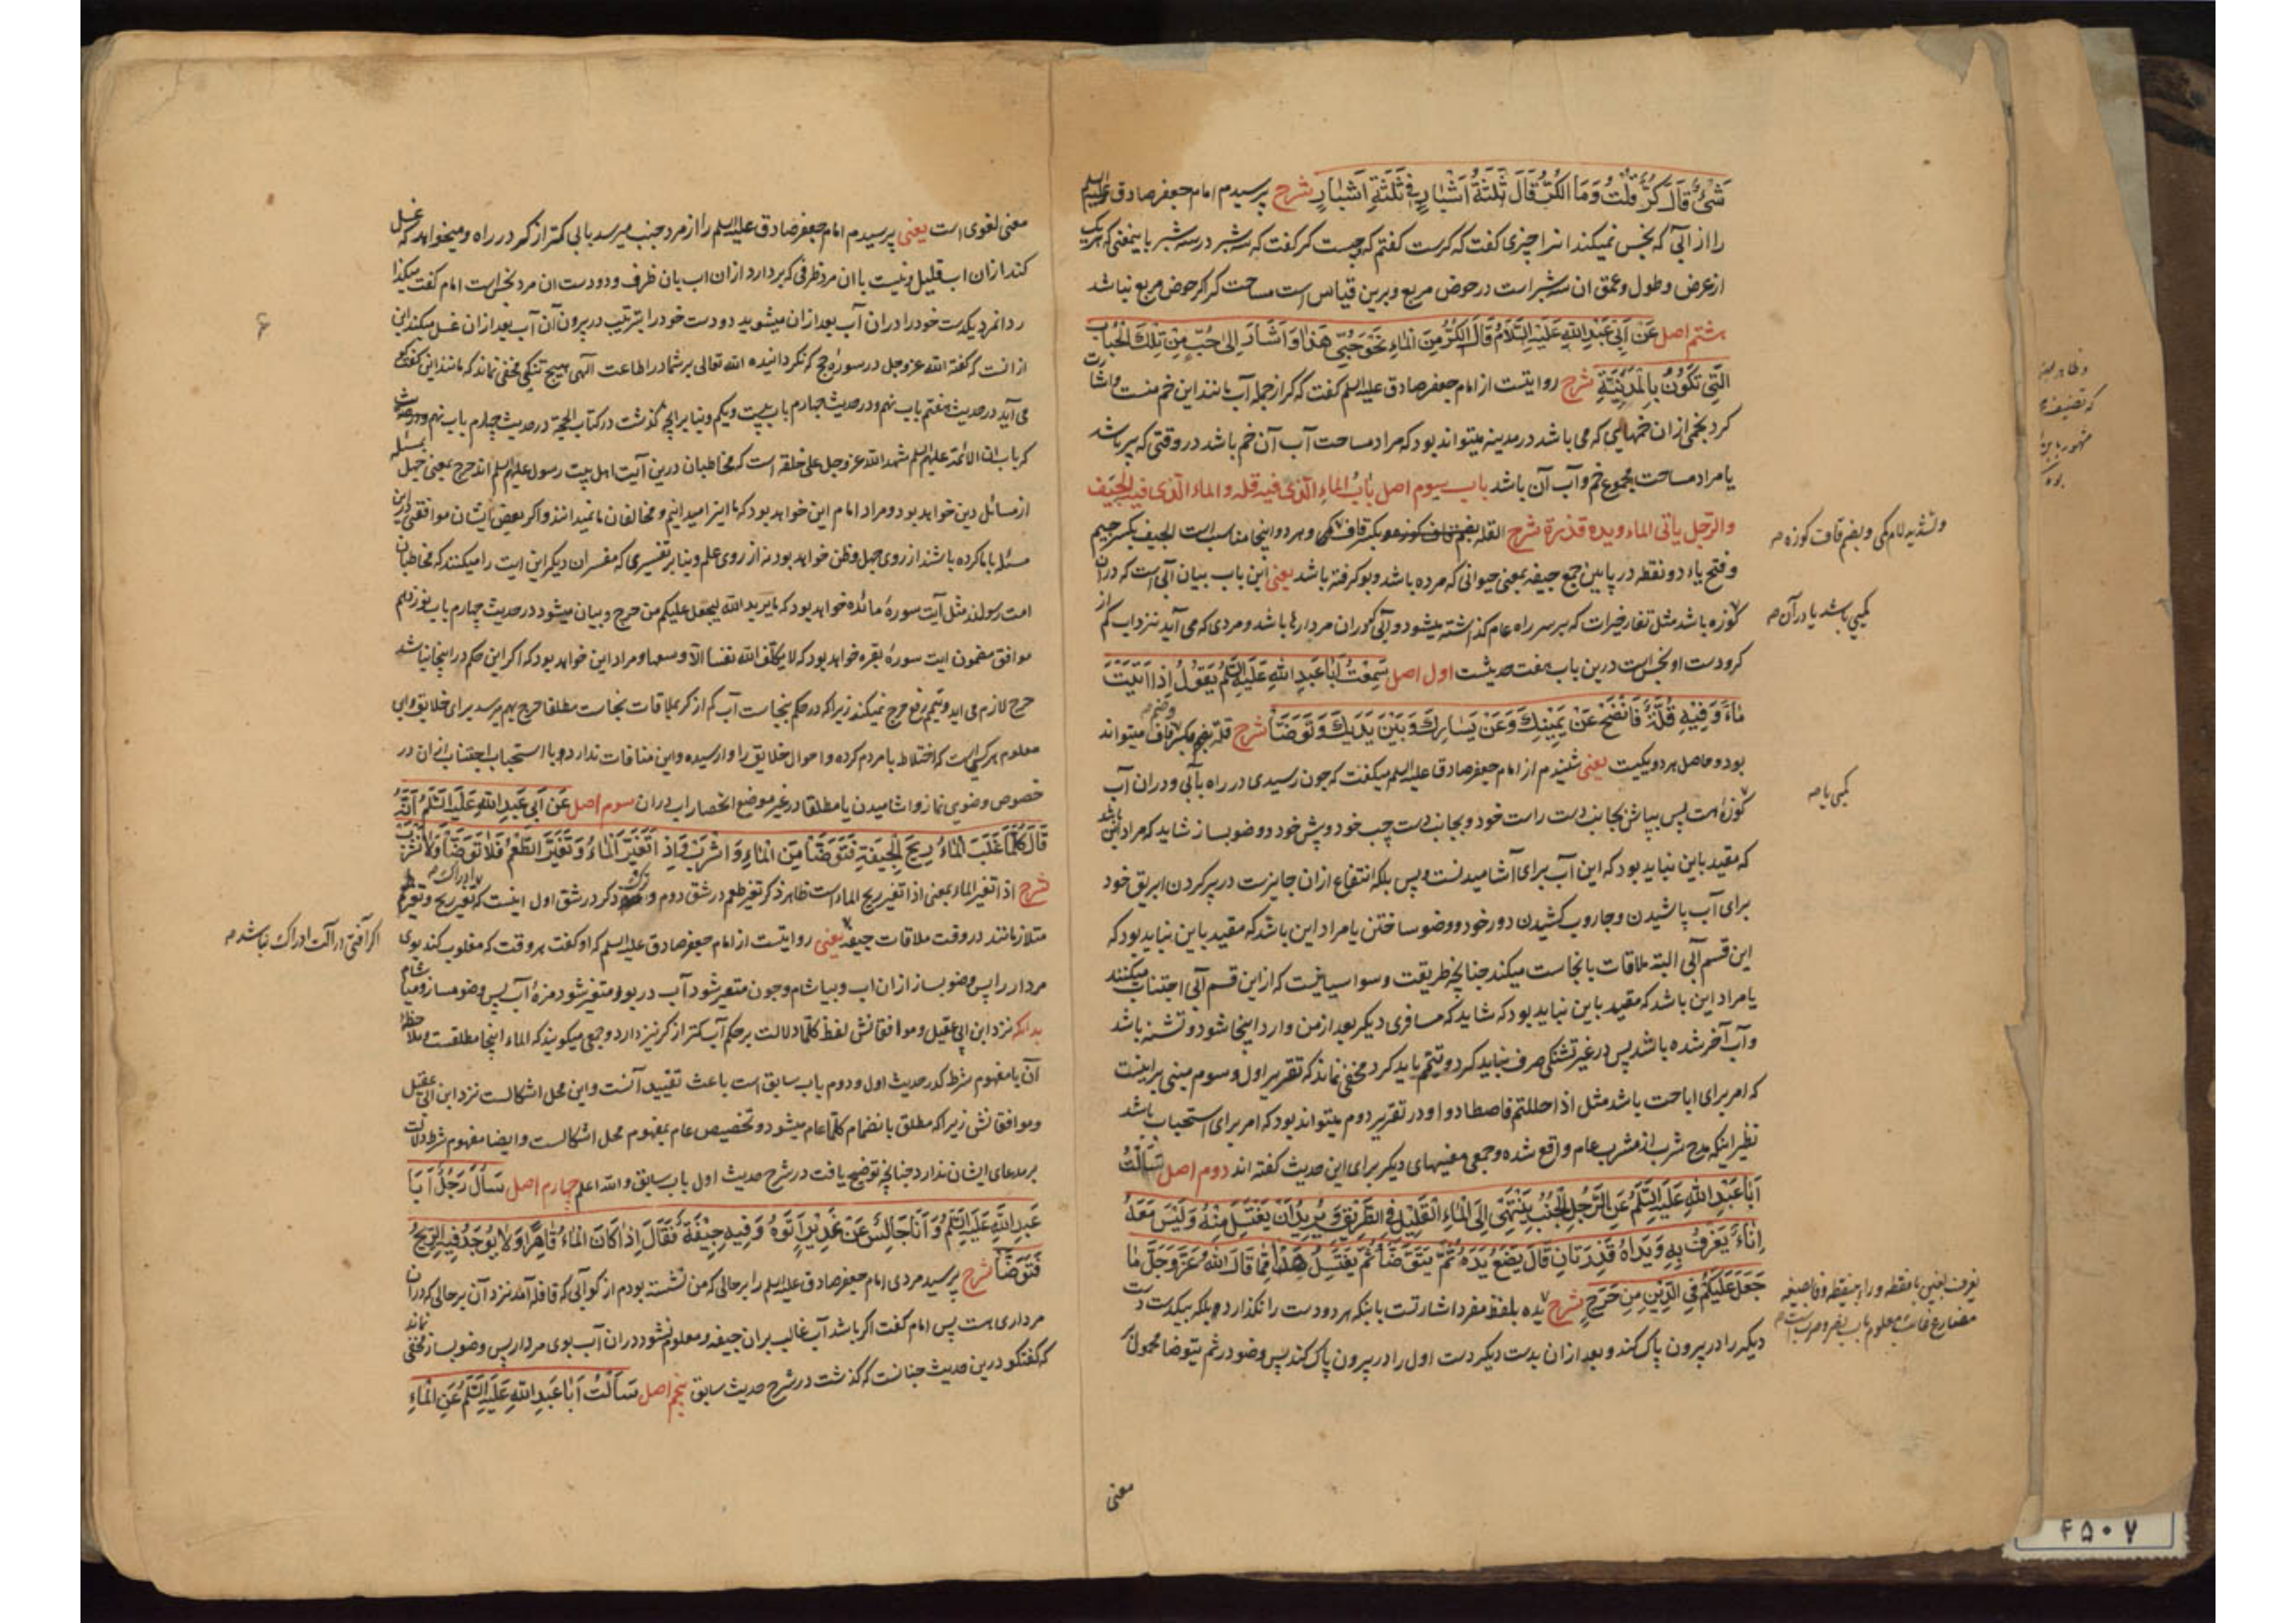 شَیْءٌ قَالَ كُرٌّ قُلْتُ وَمَا الْكُرُّ قَالَ ثَلٰثَةُ اَشْبٰارٍ فِی ثَلٰثَةِ اَشْبٰارٍ شرح پرسیدم امام جعفر صادق علیه السلم
را از آبی که نجس نمیکند انرا چیزی گفت که کرست گفتم که چیست کر گفت که سه شبر در سه شبر باینمعنی که هر یک
از عرض و طول و عمق ان سه شبر است در حوض مربع و برین قیاس است مساحت کر اکر حوض مربع نباشد
هشتم اصل عَنْ اَبِی عَبْدِ اللهِ عَلَیْهِ السَّلٰامُ قَالَ الْكُرُّ مِنَ الْمٰاءِ نَحْوُ حُبِّی هَذٰا وَ اَشَارَ اِلٰی حُبٍّ مِنْ تِلْكَ الْحِبٰابِ
الَّتِی تَكُوْنُ بِالْمَدِیْنَةِ شرح روایتست از امام جعفر صادق علیه السلم گفت که کر از جمله آب مانند این خم منست و اشارت
کرد بخمی از ان خمهایی که می باشد در مدینه میتواند بود که مراد مساحت آب آن خم باشد در وقتی که پر باشد
یا مراد مساحت مجموع خم و آب آن باشد باب سیوم اصل بٰابُ الْمٰاءِ الَّذی فیه قلة و الماء الّذی فیه الجیَف
والرّجل یأتی الماء ویده قذرة شرح القله بکسر قاف و هر دو اینجا مناسب است الجیف بکسر جیم
و فتح یاء دو نقطه در پایین جمع جیفه بمعنی حیوانی که مرده باشد و بو کرفته باشد یعنی این باب بیان آبی است که در ان
کوزه باشد مثل تغار خیرات که بر سر راه عام کذاشته میشود و آبی که در ان مردارها باشد و مردی که می آید نزد اب کم از
کر و دست او نجس است درین باب هفت حدیثست اول اصل سَمِعْتُ اَبٰا عَبْدِ اللهِ عَلَیْهِ السَّلٰمُ یَقُوْلُ اِذٰا اَتَیْتَ
مٰاءً وَ فِیْهِ قُلَّةٌ فَانْضَحْ عَنْ یَمِیْنِكَ وَ عَنْ یَسٰارِكَ وَ بَیْنَ یَدَیْكَ وَ تَوَضَّأْ شرح قله بکسر قاف و ضم میتواند
بود و حاصل هر دو یکیست یعنی شنیدم از امام جعفر صادق علیه السلم میکفت که چون رسیدی در راه بآبی و در ان آب
کوزه هست پس بپاش بجانب دست راست خود و بجانب دست چپ خود و پیش خود و وضو بساز شاید که مراد این باشد
که مقید باین نباید بود که این آب برای آشامیدنست و بس بلکه انتفاع از ان جایزست در پر کردن ابریق خود
برای آب پاشیدن و جاروب کشیدن دور خود و وضو ساختن یا مراد این باشد که مقید باین نباید بود که
این قسم آبی البته ملاقات با نجاست میکند چنانچه طریقت وسواسیانیست که از این قسم آبی اجتناب میکنند
یا مراد این باشد که مقید باین نباید بود که شاید که مسافری دیکر بعد از من وارد اینجا شود و تشنه باشد
و آب آخر شده باشد پس در غیر تشنکی صرف نباید کرد و تیمّم باید کرد و مخفی نماند که تقریر اول و سوم مبنی بر اینست
که امر برای اباحت باشد مثل اذا حللتم فاصطادوا و در تقریر دوم میتواند بود که امر برای استحباب باشد
نظیر اینکه مدح شرب از مشرب عام واقع شده و جمعی معنیهای دیکر برای این حدیث کفته اند دوم اصل سَأَلْتُ
اَبٰا عَبْدِ اللهِ عَلَیْهِ السَّلٰمُ عَنِ الرَّجُلِ الْجُنُبِ یَنْتَهِی اِلَی الْمٰاءِ الْقَلِیْلِ فِی الطَّرِیْقِ وَ یُرِیْدُ اَنْ یَغْتَسِلَ مِنْهُ وَ لَیْسَ مَعَهُ
اِنٰاءٌ یَغْرِفُ بِهِ وَ یَدٰاهُ قَذِرَتٰانِ قَالَ یَضَعُ یَدَهُ ثُمَّ یَتَوَضَّأُ ثُمَّ یَغْتَسِلُ هَذٰا مِمّٰا قَالَ اللهُ عَزَّ وَجَلَّ مٰا
جَعَلَ عَلَیْكُمْ فِی الدِّیْنِ مِنْ حَرَجٍ شرح یده بلفظ مفرد اشارتست باینکه هر دو دست را نکذارد بلکه بیکدست دست
دیکر را در بیرون پاک کند و بعد از ان بدست دیکر دست اول را در بیرون پاک کند پس وضو در ثم یتوضأ محمول بر
معنی
و تشدید لام یکی و بضم قاف کوزه صح
یکی یا صح
معنی لغوی است یعنی پرسیدم امام جعفر صادق علیه السلم را از مرد جنب میرسد بابی کمتر از کر در راه و میخواهد که غسل
کند از ان اب قلیل و نیست با ان مرد ظرفی که بردارد از ان اب بان ظرف و دو دست ان مرد نجس است امام کفت میکذا
رد انمرد یکدست خود را در ان آب بعد از ان میشوید دو دست خود را بترتیب در بیرون آن آب بعد از ان غسل میکند این
از انست که کفته الله عز و جل در سورهٔ حج که نکردانیده الله تعالی بر شما در اطاعت آلهی هیچ تنکی مخفی نماند که مانند این کفتکو
می آید در حدیث هفتم باب نهم و در حدیث چهارم باب بیست و یکم و بنا بر انچه کذشت در کتاب الحجة در حدیث چهارم باب نهم و در حدیث
که باب ان الائمة علیهم السلم شهداء الله عز و جل علی خلقه است که مخاطبان درین آیت اهل بیت رسول علیهم السلم اند حرج بمعنی جهل بمسئله
از مسائل دین خواهد بود و مراد امام این خواهد بود که ما اینرا میدانیم و مخالفان ما نمیدانند و اکر بعض ایشان موافقتی درین
مسئله با ما کرده باشند از روی جهل و ظن خواهد بود نه از روی علم و بنا بر تفسیری که مفسران دیکر این ایت را میکنند که مخاطبان
امت رسولند مثل آیت سورهٔ مائده خواهد بود که ما یرید الله لیجعل علیکم من حرج و بیان میشود در حدیث چهارم باب نوزدهم
موافق مضمون ایت سورهٔ بقره خواهد بود که لا یکلّف الله نفسا الّا وسعها و مراد این خواهد بود که اکر این حکم در اینجا نباشد
حرج لازم می اید و تیمّم رفع حرج نمیکند زیرا که در حکم بنجاست آب کم از کر بملاقات نجاست مطلقا حرج بهم میرسد برای خلایق و این
معلوم هر کسی است که اختلاط با مردم کرده و احوال خلایق را وارسیده و این منافات ندارد با استحباب اجتناب از ان در
خصوص وضوی نماز و اشامیدن یا مطلقا در غیر موضع انحصار اب در ان سوم اصل عَنْ اَبِی عَبْدِ اللهِ عَلَیْهِ السَّلٰمُ اَنَّهُ
قَالَ كُلَّمٰا غَلَبَ الْمٰاءُ رِیْحَ الْجِیْفَةِ فَتَوَضَّأْ مِنَ الْمٰاءِ وَ اشْرَبْ وَ اِذَا تَغَیَّرَ الْمٰاءُ وَ تَغَیَّرَ الطَّعْمُ فَلٰا تَوَضَّأْ وَلٰا تَشْرَبْ
شرح اذا تغیر الماء بمعنی اذا تغیر ریح الماء است ظاهر ذکر تغیر طعم در شق دوم و ترک ذکر در شق اول اینست که تغیر ریح و تغیر طعم
متلازمانند در وقت ملاقات جیفه یعنی روایتست از امام جعفر صادق علیه السلم که او کفت هر وقت که مغلوب کند بوی
مردار را پس وضو بساز از ان اب و بیاشام و چون متغیر شود آب در بو و متغیر شود مزهٔ آب پس وضو مساز و میاشام
بدانکه نزد ابن ابی عقیل و موافقانش لفظ کلّما دلالت بر حکم آب کمتر از کر نیز دارد و جمعی میکویند که الماء اینجا مطلقست و ملاحظهٔ
آن با مفهوم شرط که در حدیث اول و دوم باب سابق است باعث تقیید آنست و این محل اشکالست نزد ابن ابی عقیل
و موافقانش زیرا که مطلق بانضمام کلّما عام میشود و تخصیص عام بمفهوم محل اشکالست و ایضا مفهوم شرط دلالت
بر مدعای ایشان ندارد چنانچه توضیح یافت در شرح حدیث اول باب سابق و الله اعلم چهارم اصل سَأَلَ رَجُلٌ اَبٰا
عَبْدِ اللهِ عَلَیْهِ السَّلٰمُ وَ اَنَا جَالِسٌ عَنْ غَدِیْرٍ اَتَوْهُ وَ فِیْهِ جِیْفَةٌ فَقَالَ اِذٰا كَانَ الْمٰاءُ قٰاهِرًا وَلٰا یُوْجَدُ فِیْهِ الرِّیْحُ
فَتَوَضَّأْ شرح پرسید مردی امام جعفر صادق علیه السلم را بر حالی که من نشسته بودم از کو آبی که قافله آمد نزد آن بر حالی که در ان
مرداری هست پس امام کفت اکر باشد آب غالب بر ان جیفه و معلوم نشود در ان آب بوی مردار پس وضو بساز مخفی نماند
که کفتکو درین حدیث چنانست که کذشت در شرح حدیث سابق پنجم اصل سَأَلْتُ اَبٰا عَبْدِ اللهِ عَلَیْهِ السَّلٰمُ عَنِ الْمٰاءِ
اکر آفتی در آلت ادراک نباشد صح
۴۵۰۷